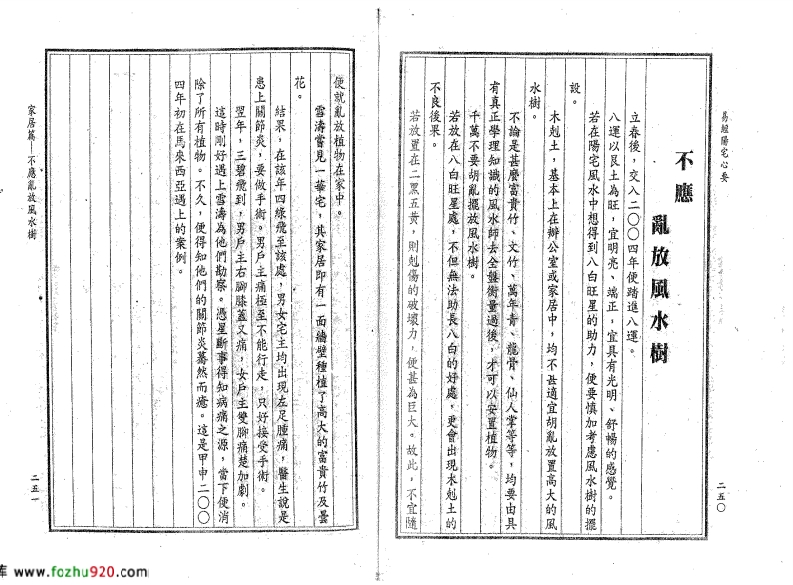 易經陽宅心要
二五〇
不應亂放風水樹
立春後，交入二〇〇四年便踏進八運。
八運以艮土為旺，宜明亮、端正，宜具有光明、舒暢的感覺。
若在陽宅風水中想得到八白旺星的助力，便要慎加考慮風水樹的擺
設。
木剋土，基本上在辦公室或家居中，均不甚適宜胡亂放置高大的風
水樹。
不論是甚麼富貴竹、文竹、萬年青、龍骨、仙人掌等等，均要由具
有真正學理知識的風水師去全盤衡量過後，才可以安置植物。
千萬不要胡亂擺放風水樹。
若放在八白旺星處，不但無法助長八白的好處，更會出現木剋土的
不良後果。
若放置在二黑五黃，則剋傷的破壞力，便甚為巨大。故此，不宜隨
便就亂放植物在家中。
雪濤嘗見一華宅，其家居即有一面牆壁種植了高大的富貴竹及曇
花。
結果，在該年四綠飛至該處，男女宅主均出現左足腫痛，醫生說是
患上關節炎，要做手術。男戶主痛極至不能行走，只好接受手術。
翌年，三碧飛到，男戶主右腳膝蓋又痛，女戶主雙腳痛楚加劇。
這時剛好遇上雪濤為他們勘察。憑星斷事得知病痛之源，當下便消
除了所有植物。不久，便得知他們的關節炎驀然而癒。這是甲申二〇〇
四年初在馬來西亞遇上的案例。
家居篇—不應亂放風水樹
二五一
库 www.fozhu920.com